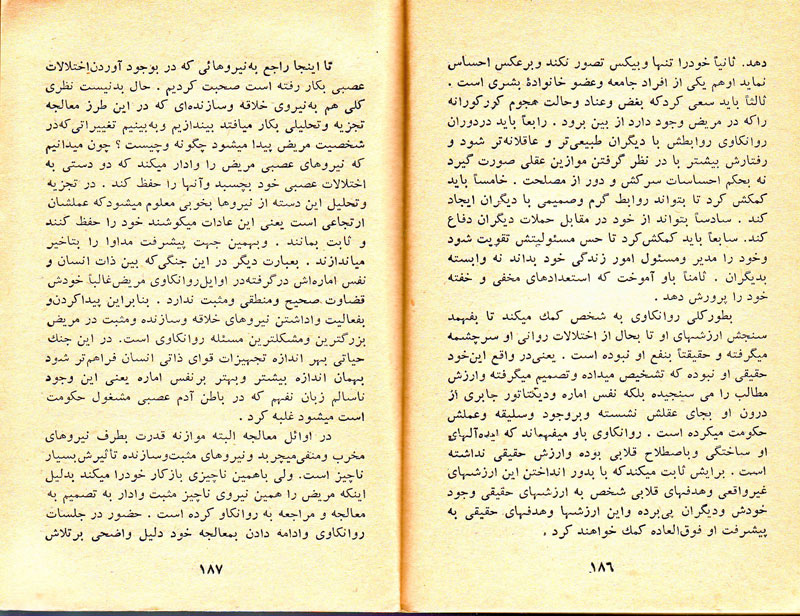 دهد. ثانیاً خودرا تنها وبیکس تصور نکند وبرعکس احساس
نماید اوهم یکی از افراد جامعه وعضو خانوادهٔ بشری است .
ثالثاً باید سعی کردکه بغض وعناد وحالت هجوم کورکورانه
راکه در مریض وجود دارد از بین برود . رابعاً باید دردوران
روانکاوی روابطش با دیگران طبیعی‌تر و عاقلانه‌تر شود و
رفتارش بیشتر با در نظر گرفتن موازین عقلی صورت گیرد
نه بحکم احساسات سرکش و دور از مصلحت . خامساً باید
کمکش کرد تا بتواند روابط گرم وصمیمی با دیگران ایجاد
کند . سادساً بتواند از خود در مقابل حملات دیگران دفاع
کند. سابعاً باید کمکش‌کرد تا حس مسئولیتش تقویت شود
وخود را مدیر ومسئول امور زندگی خود بداند نه وابسته
بدیگران . ثامناً باو آموخت که استعدادهای مخفی و خفته
خود را پرورش دهد .
بطورکلی روانکاوی به شخص کمك میکند تا بفهمد
سنجش ارزشهای او تا بحال از اختلالات روانی او سرچشمه
میگرفته و حقیقتاً بنفع او نبوده است . یعنی‌در واقع این‌خود
حقیقی او نبوده که تشخیص میداده وتصمیم میگرفته وارزش
مطالب را می سنجیده بلکه نفس اماره ودیکتاتور جابری از
درون او بجای عقلش نشسته وبروجود وسلیقه وعملش
حکومت میکرده است . روانکاوی باو میفهماند که ایده‌آلهای
او ساختگی وباصطلاح قلابی بوده وارزش حقیقی نداشته
است . برایش ثابت میکندکه با بدور انداختن این ارزشهای
غیرواقعی وهدفهای قلابی شخص به ارزشهای حقیقی وجود
خودش ودیگران پی‌برده واین ارزشها وهدفهای حقیقی به
پیشرفت او فوق‌العاده کمك خواهند کرد .
۱۸۶
تا اینجا راجع به‌نیروهائی که در بوجود آوردن‌اختلالات
عصبی بکار رفته است صحبت کردیم . حال بدنیست نظری
کلی هم به‌نیروی خلاقه وسازنده‌ای که در این طرز معالجه
تجزیه وتحلیلی بکار میافتد بیندازیم وبه‌بینیم تغییراتی‌که‌در
شخصیت مریض پیدا میشود چگونه وچیست ؟ چون میدانیم
که نیروهای عصبی مریض را وادار میکند که دو دستی به
اختلالات عصبی خود بچسبد وآنها را حفظ کند . در تجزیه
وتحلیل این دسته از نیروها بخوبی معلوم میشودکه عملشان
ارتجاعی است یعنی این عادات میکوشند خود را حفظ کنند
و ثابت بمانند . وبهمین جهت پیشرفت مداوا را بتاخیر
میاندازند . بعبارت دیگر در این جنگی‌که بین ذات انسان و
نفس اماره‌اش درگرفته‌در اوایل‌روانکاوی مریض‌غالباً خودش
قضاوت صحیح ومنطقی ومثبت ندارد . بنابراین پیداکردن‌و
بفعالیت واداشتن نیروهای خلاقه وسازنده ومثبت در مریض
بزرگترین ومشکلترین مسئله روانکاوی است. در این جنك
حیاتی بهر اندازه تجهیزات قوای ذاتی انسان فراهم‌تر شود
بهمان اندازه بیشتر وبهتر برنفس اماره یعنی این وجود
ناسالم زبان نفهم که در باطن آدم عصبی مشغول حکومت
است میشود غلبه کرد .
در اوائل معالجه البته موازنه قدرت بطرف نیروهای
مخرب ومنفی‌میچربد ونیروهای مثبت‌وسازنده تاثیرش‌بسیار
ناچیز است. ولی باهمین ناچیزی بازکار خودرا میکند بدلیل
اینکه مریض را همین نیروی ناچیز مثبت وادار به تصمیم به
معالجه و مراجعه به روانکاو کرده است . حضور در جلسات
روانکاوی وادامه دادن بمعالجه خود دلیل واضحی برتلاش
۱۸۷